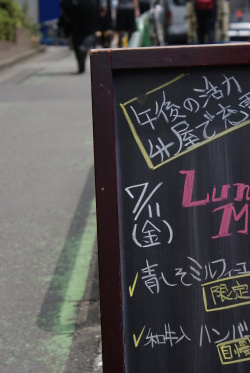 午後の活力
弁屋で充
7/11
(金)
Lun
M
✓青しそミルフィユ
限定
✓和牛入ハンバ
自慢